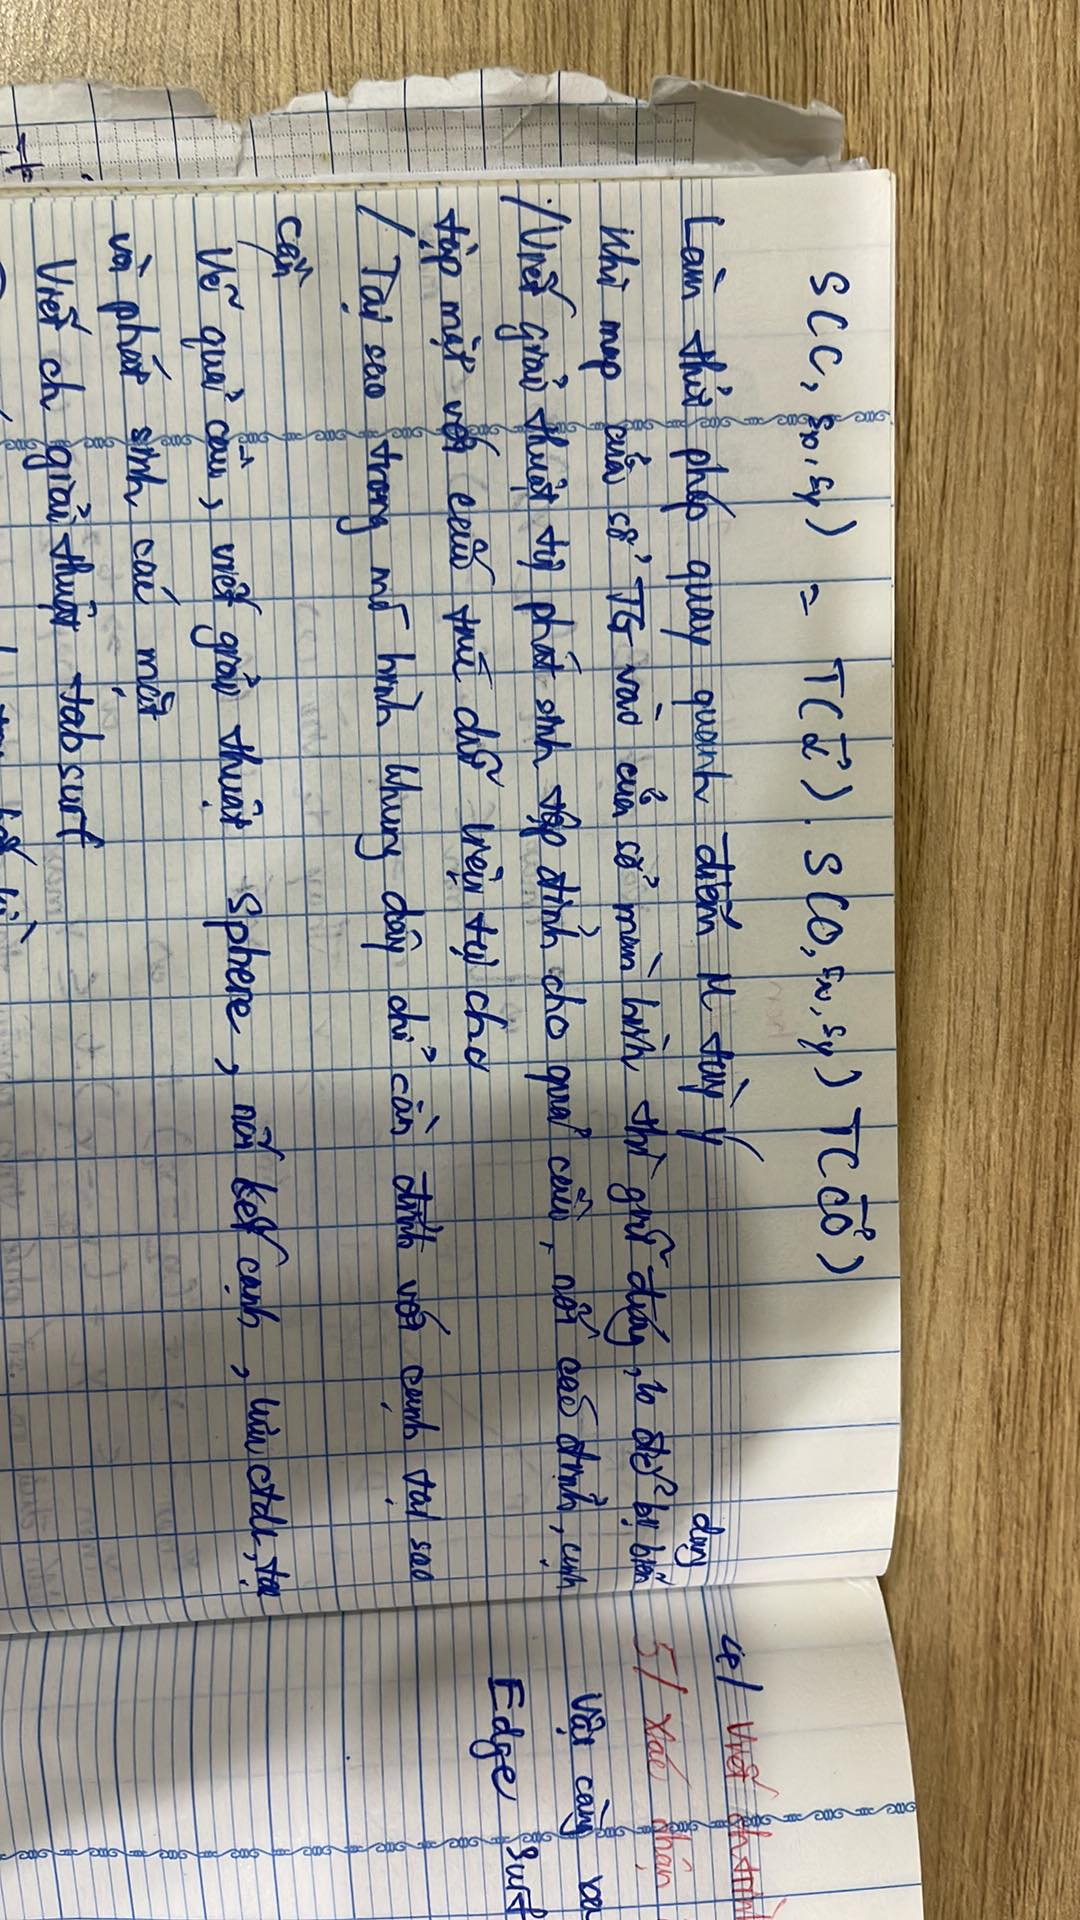 S(C, Sx, Sy) = T(c⃗). S(O, Sx, Sy) T(c⃗o)
Làm thử phép quay quanh điểm M tùy ý
Khi map cửa sổ TG vào cửa sổ màn hình thì giữ đúng, ko để bị biến
dạng
/ Viết giải thuật tự phát sinh tập đỉnh cho quả cầu, nối các đỉnh, cạnh
tập mặt với cấu trúc dữ liệu tự cho
/ Tại sao trong mô hình khung dây chỉ cần đỉnh với cạnh tại sao
cần
Vẽ quả cầu, viết giải thuật Sphere, nối kết cạnh,
và phát sinh các mặt
Viết ch giải thuật tabsurf
4/ Viết ch trình
5/ Xác nhận
Vật càng xa
Edge surf